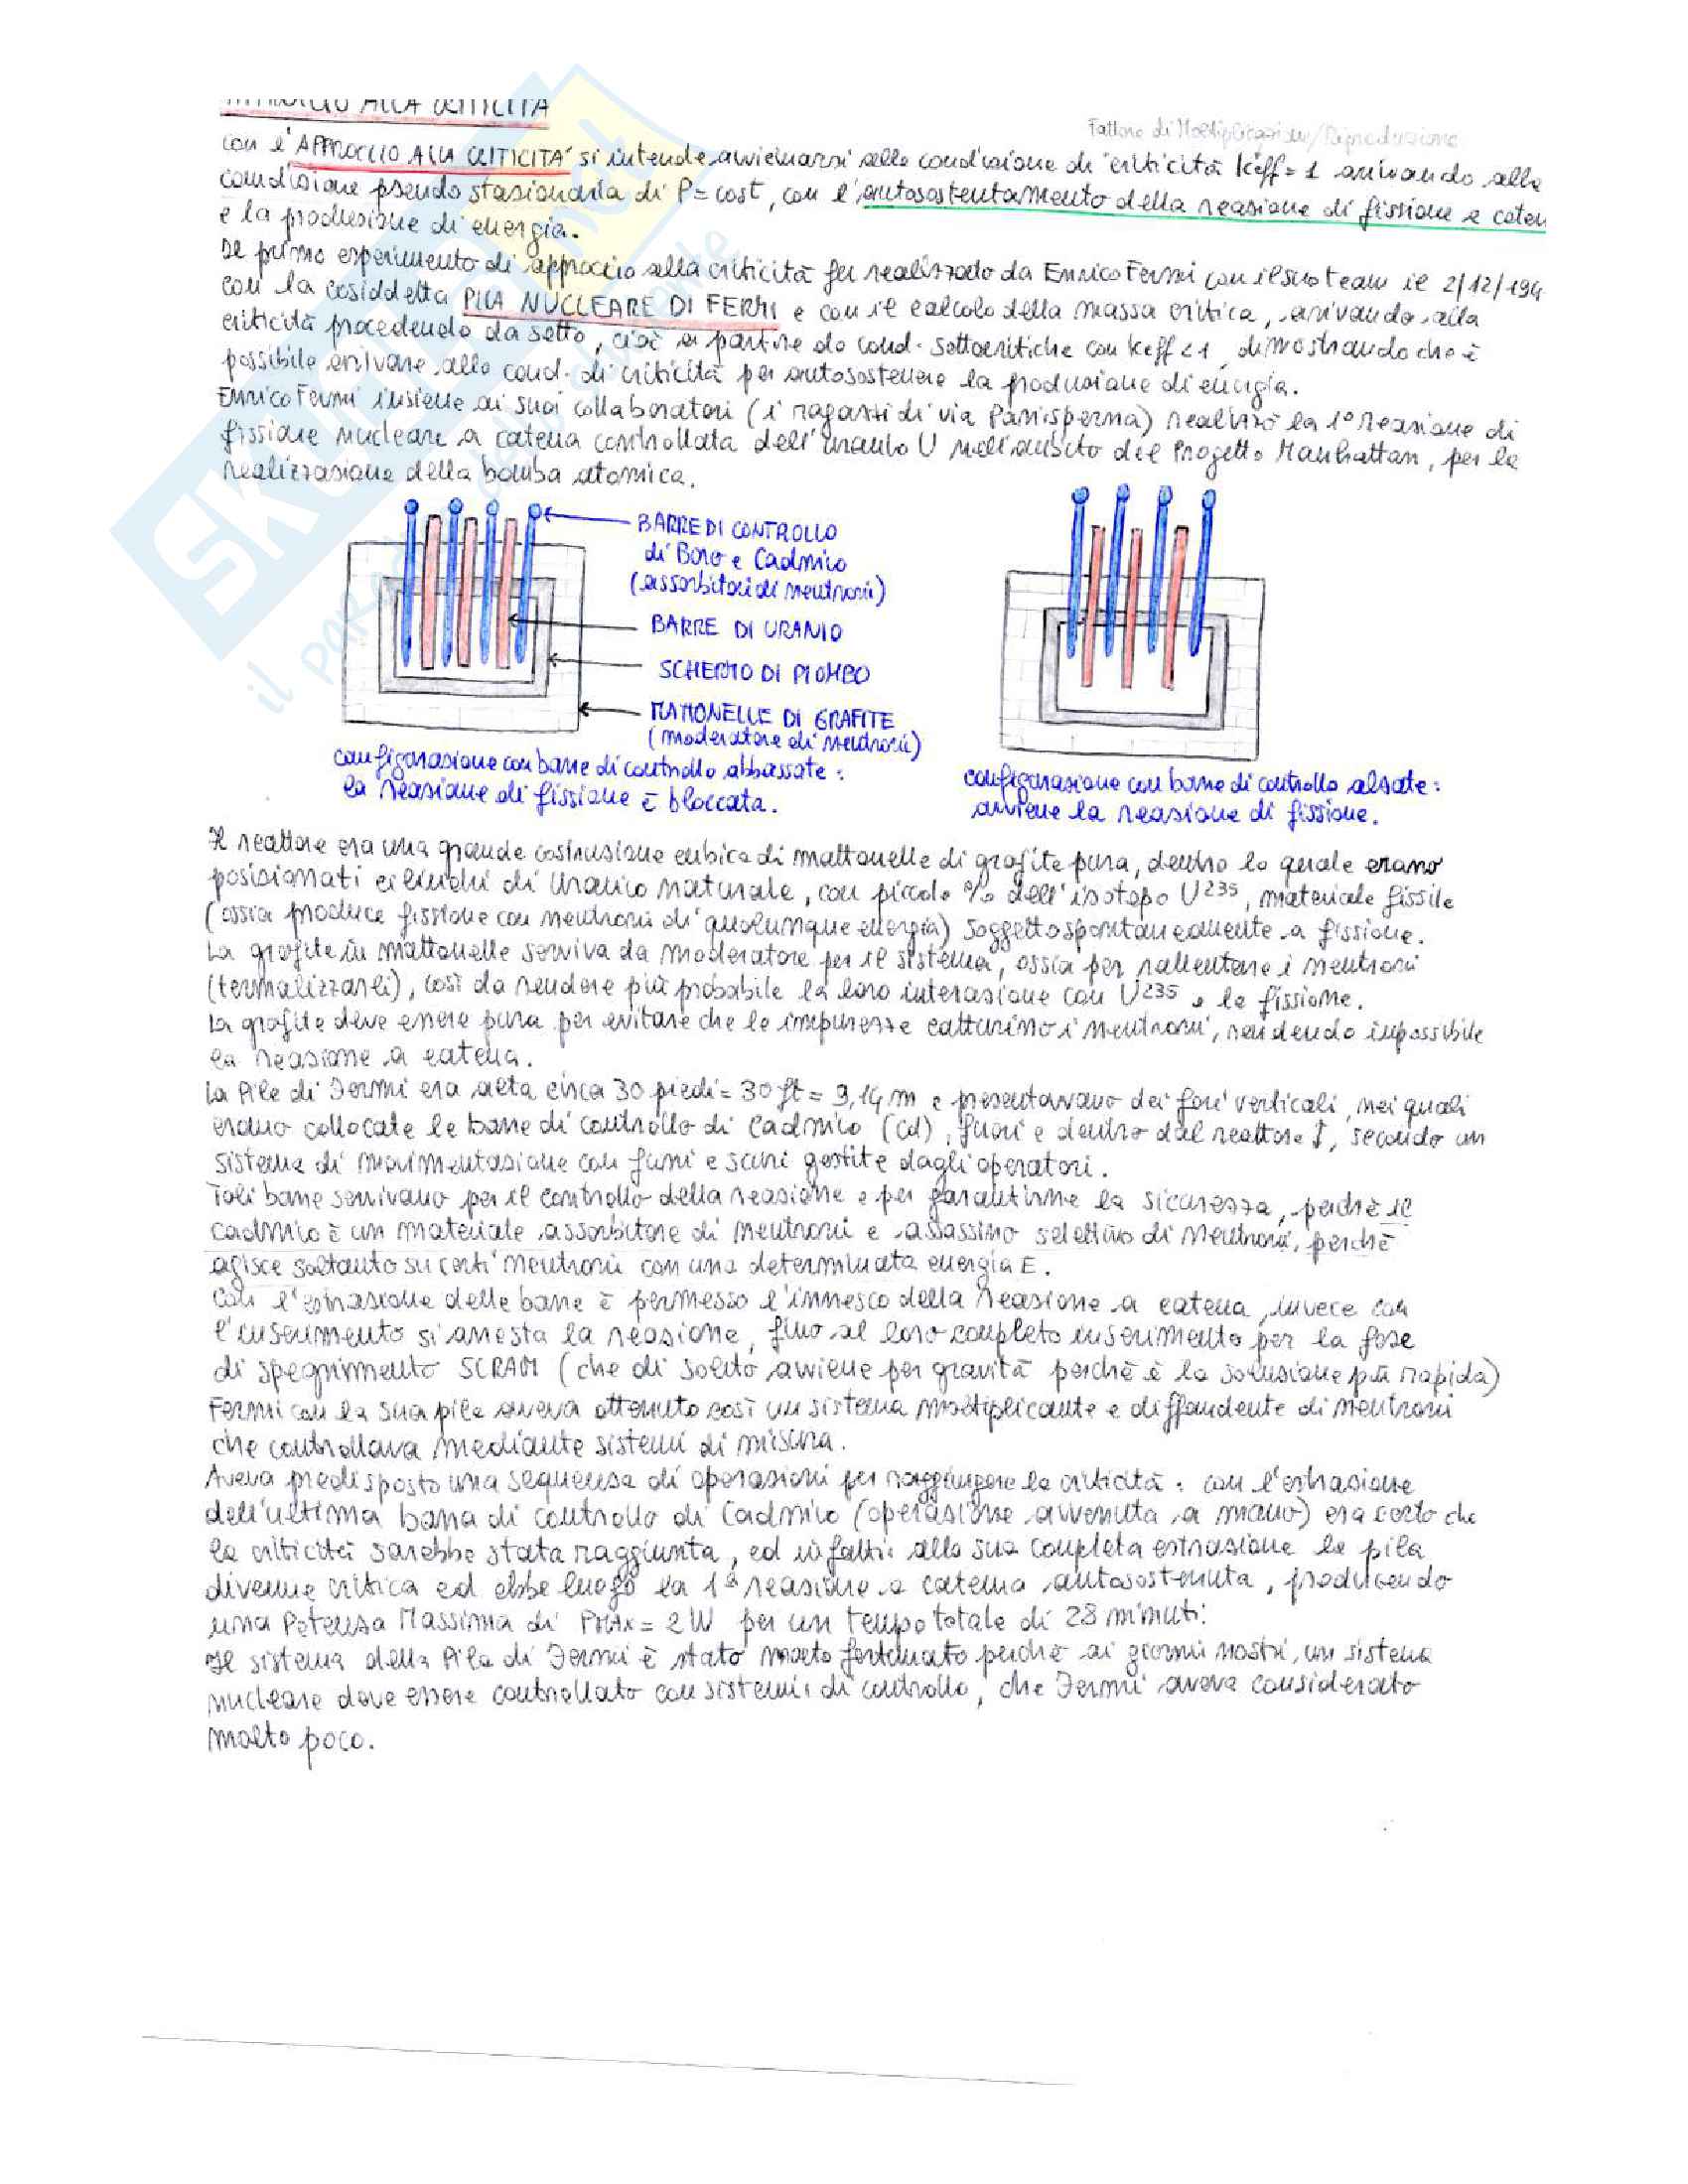 APPROCCIO ALLA CRITICITÀ
Fattore di Moltiplicazione/Riproduzione
con l'"APPROCCIO ALLA CRITICITÀ" si intende avvicinarsi alla condizione di criticità Keff=1 arrivando alla
condizione pseudo stazionaria di P=cost, con l'autosostentamento della reazione di fissione a caten
e la produzione di energia.
Il primo esperimento di approccio alla criticità fu realizzato da Enrico Fermi con il suo team il 2/12/194
con la cosiddetta PILA NUCLEARE DI FERMI e con il calcolo della massa critica, arrivando alla
criticità procedendo da sotto, cioè a partire da cond. sottocritiche con Keff<1, dimostrando che è
possibile arrivare alla cond. di criticità per autosostenere la produzione di energia.
Enrico Fermi insieme ai suoi collaboratori (i ragazzi di via Panisperna) realizzò la 1° reazione di
fissione nucleare a catena controllata dell'uranio U nell'ambito del Progetto Manhattan, per la
realizzazione della bomba atomica.
BARRE DI CONTROLLO
di Boro e Cadmio
(assorbitori di neutroni)
BARRE DI URANIO
SCHERMO DI PIOMBO
MATTONELLE DI GRAFITE
(moderatore di neutroni)
configurazione con barre di controllo abbassate:
la reazione di fissione è bloccata.
configurazione con barre di controllo alzate:
avviene la reazione di fissione.
Il reattore era una grande costruzione cubica di mattonelle di grafite pura, dentro la quale erano
posizionati cilindri di Uranio naturale, con piccola % dell'isotopo U235, materiale fissile
(ossia produce fissione con neutroni di qualunque energia) soggetto spontaneamente a fissione.
La grafite in mattonelle serviva da moderatore per il sistema, ossia per rallentare i neutroni
(termalizzarli), così da rendere più probabile la loro interazione con U235 e la fissione.
La grafite deve essere pura per evitare che le impurezze catturino i neutroni, rendendo impossibile
la reazione a catena.
La Pila di Fermi era alta circa 30 piedi = 30 ft = 9,14 m e presentavano dei fori verticali, nei quali
erano collocate le barre di controllo di Cadmio (Cd), fuori e dentro dal reattore ↕, secondo un
sistema di movimentazione con funi e scuri gestite dagli operatori.
Tali barre servivano per il controllo della reazione e per garantirne la sicurezza, perchè il
cadmio è un materiale assorbitore di neutroni e assassino selettivo di neutroni, perchè
agisce soltanto su certi neutroni con una determinata energia E.
Con l'estrazione delle barre è permesso l'innesco della reazione a catena, invece con
l'inserimento si arresta la reazione, fino al loro completo inserimento per la fase
di spegnimento SCRAM (che di solito avviene per gravità perchè è la soluzione più rapida)
Fermi con la sua pila aveva ottenuto così un sistema moltiplicante e diffondente di neutroni
che controllava mediante sistemi di misura.
Aveva predisposto una sequenza di operazioni per raggiungere la criticità: con l'estrazione
dell'ultima barra di controllo di Cadmio (operazione avvenuta a mano) era certo che
la criticità sarebbe stata raggiunta, ed infatti alla sua completa estrazione la pila
divenne critica ed ebbe luogo la 1ª reazione a catena autosostenuta, producendo
una Potenza Massima di PMAX = 2W per un tempo totale di 28 minuti.
Il sistema della Pila di Fermi è stato molto fortunato perchè ai giorni nostri, un sistema
nucleare deve essere controllato con sistemi di controllo, che Fermi aveva considerato
molto poco.
SKUOLA.net
il paradiso dello studente